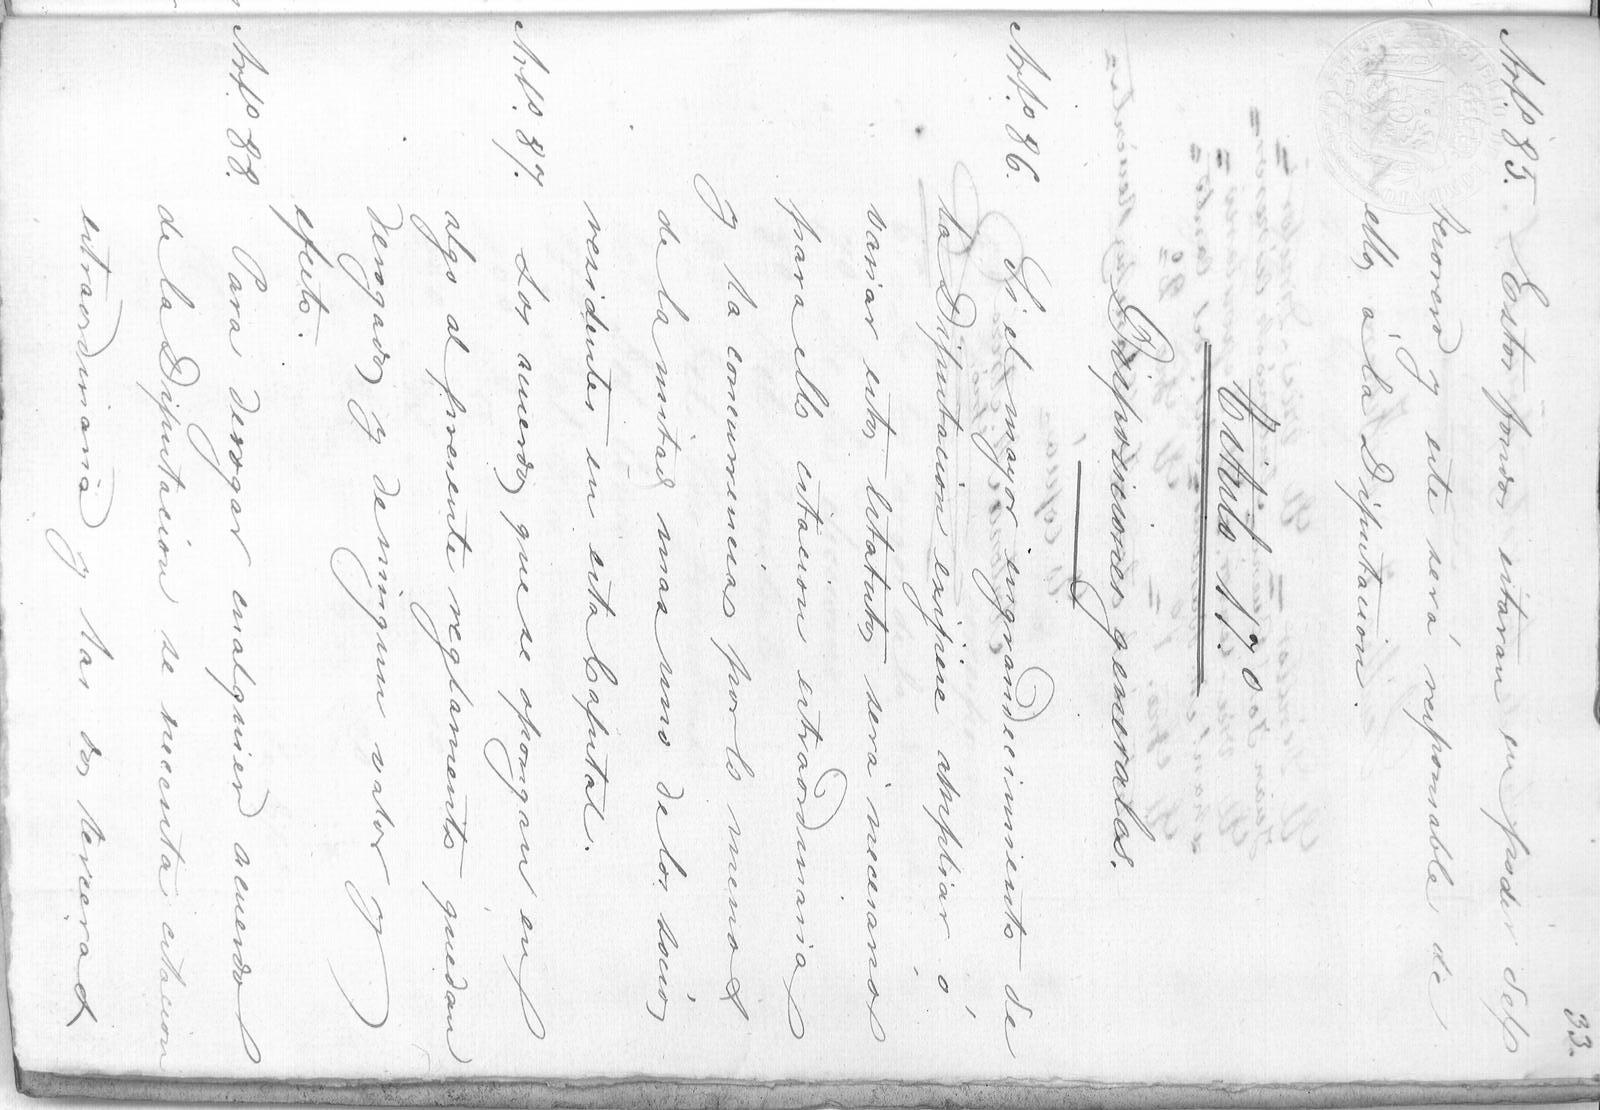 33.
Art.º 85. Estos fondos estarán en poder del
tesorero y este será responsable de
ello, á la Diputacion.
Título 17.º
Disposiciones generales.
Art.º 86. Si el mayor engrandecimiento de
la Diputacion exijiese ampliar ó
variar estos Estatutos será necesario
para ello citacion extraordinaria
y la concurrencia por lo menos
de la mitad mas uno de los socios
residentes en esta Capital.
Art.º 87. Los acuerdos que se opongan en
algo al presente reglamento quedan
derogados y de ningun valor y
efecto.
Art.º 88. Para derogar cualquier acuerdo
de la Diputacion se necesita citacion
extraordinaria y las dos terceras